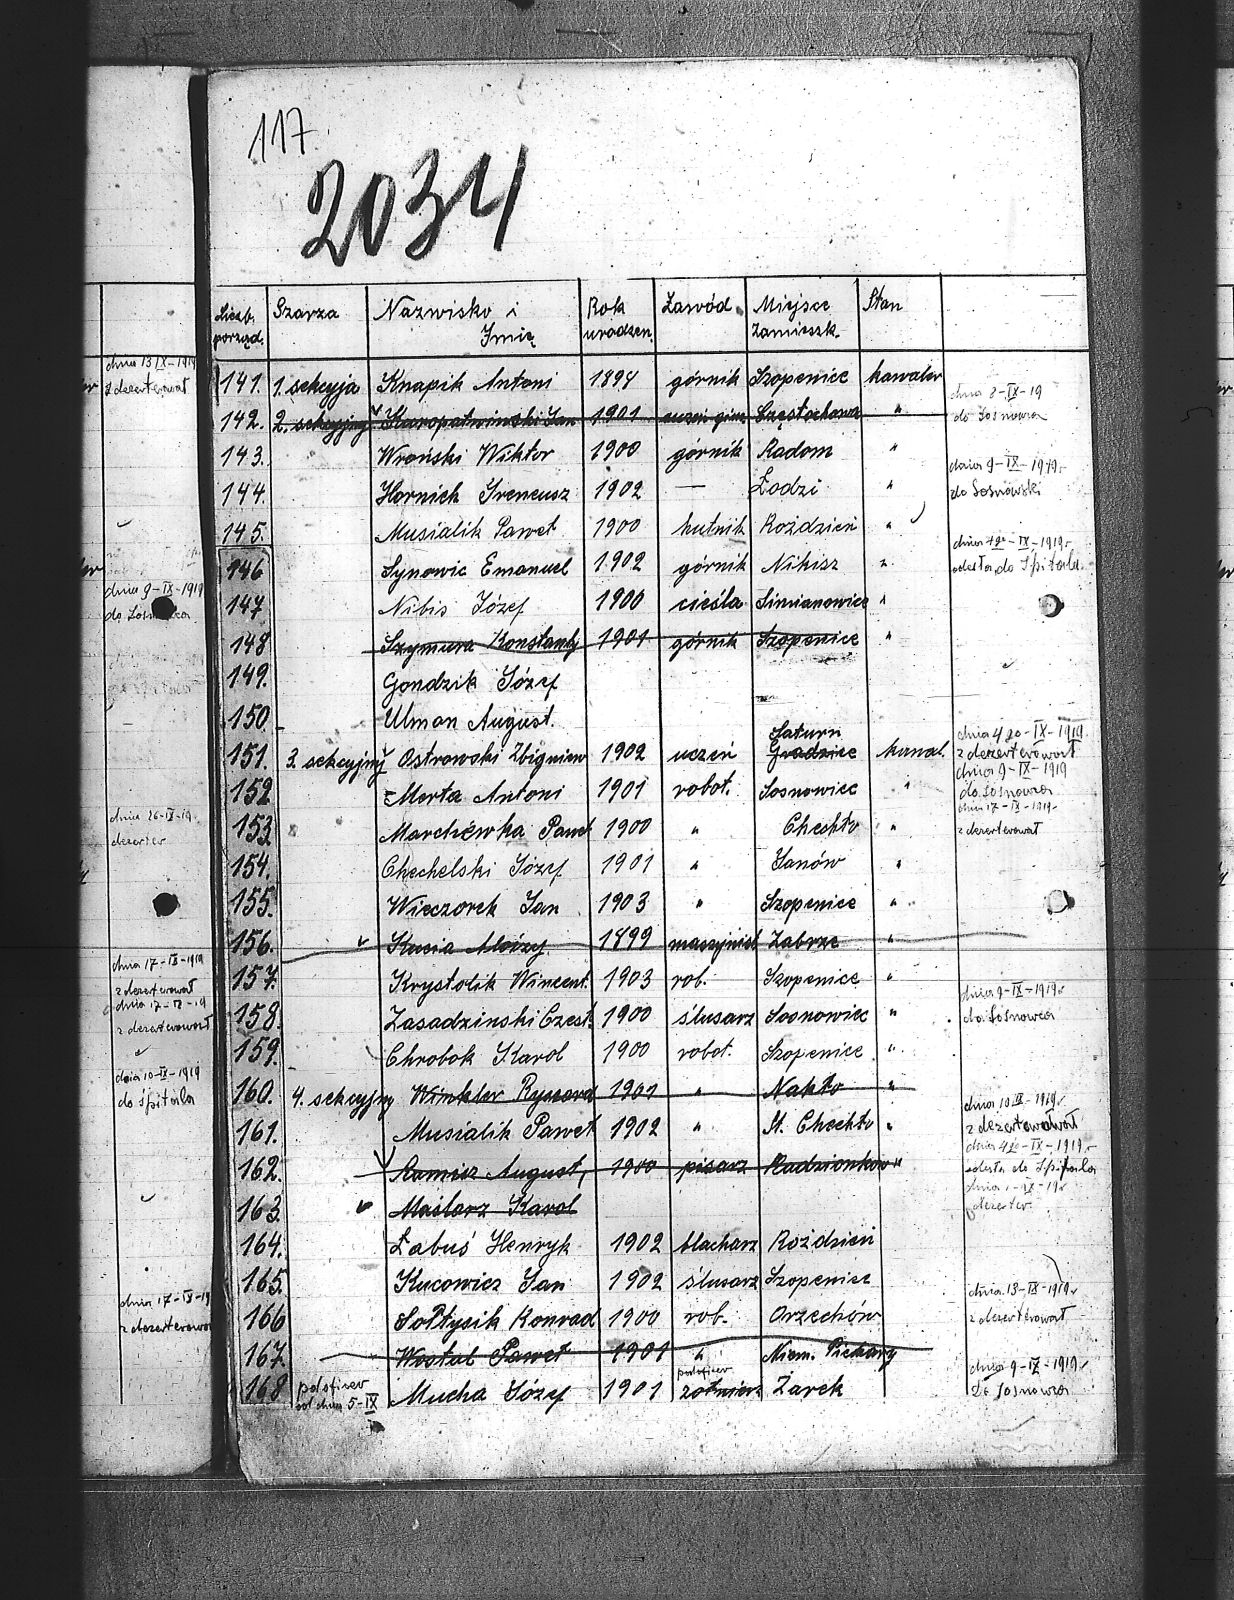 117.
2034
Liczb. porząd. Szarza Nazwisko i Imię Rok urodzen. Zawód. Miejsce zamieszk. Stan
141. 1. sekcyja Knapik Antoni 1894 górnik Szopenice kawaler
142. 2. sekcyjny Kuropatwinski Jan 1901 uczeń gimn. Częstochowa " dnia 8-IX-19 do Sosnowca
143. Wroński Wiktor 1900 górnik Radom "
144. Hornich Ireneusz 1902 — Łodzi " dnia 9-IX-1919r. do Sosnowski
145. Musialik Paweł 1900 hutnik Roździeń "
146 Synowic Emanuel 1902 górnik Nikisz " dnia 12-IX-1919r. odesta do Szpitala
147 Nibis Józef 1900 cieśla Simianowice "
148 Szymura Konstanty 1901 górnik Szopenice "
149. Gondzik Józef
150. Ulman August.
151. 3. sekcyjny Ostrowski Zbigniew 1902 uczeń Saturn Gradzice kawal. dnia 4 go-IX-1919 z dezerterował
152 Merta Antoni 1901 robot. Sosnowiec " dnia 9-IX-1919 do Sosnowca
153 Marchewka Paweł 1900 " Chechło " dnia 17-IX-1919r. z dezerterował
154. Chechelski Józef 1901 " Janów "
155. Wieczorek Jan 1903 " Szopenice "
156. Kucia Alojzy 1899 maszynist Zabrze "
157. Krystolik Wincent. 1903 rob. Szopenice "
158. Zasadzinski Czest. 1900 ślusarz Sosnowiec " dnia 9-IX-1919r do Sosnowca
159. Chrobok Karol 1900 robot. Szopenice "
160. 4. sekcyjny Winkler Ryszard 1901 " Nakło "
161. Musialik Paweł 1902 " M. Chechło " dnia 10.IX-1919r. z dezerterował
162. Ramisz August, 1900 pisarz Radzionków " dnia 4go-IX-1919r. odesta do Szpitala
163. Maślorz Karol dezerter.
164. Łabuś Henryk 1902 blacharz Roździeń
165. Kucowicz Jan 1902 ślusarz Szopenice
166 Sołtysik Konrad 1900 rob. Orzechów dnia 13-IX-1919r z dezerterował
167. Wostal Paweł 1901 " Niem. Piekary
168 podoficer od dnia 5-IX Mucha Józef 1901 podoficer żołnierz Żarek dnia 9-IX-1919r do Sosnowca
dnia 13 IX-1919
z dezerterował
dnia 9-IX-1919
do Sosnowca
dnia 26-IX-19.
dezerter
dnia 17-IX-1919
z dezerterował
dnia 17-IX-19
z dezerterował
dnia 10-IX-1919
do Szpitala
dnia 17-IX-19
z dezerterował